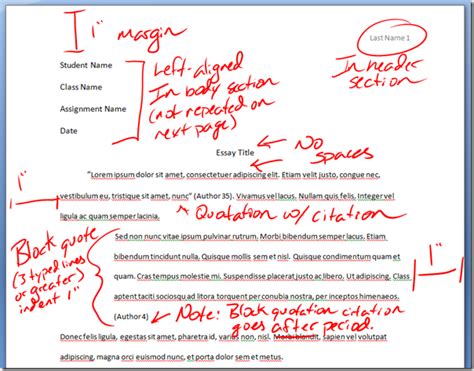 1" margin
Last Name 1
Student Name
Left-aligned
In header
section
In body section
Class Name
(not repeated on
Assignment Name
next page)
Date
Essay Title
No
spaces
"Lorem ipsum dolor sit amet, consectetuer adipiscing elit. Etiam velit justo, congue nec,
1"
vestibulum eu, tristique sit amet, nunc" (Author 35). Vivamus vel lacus. Nullam quis felis. Integer vel
ligula ac quam semper lacinia.
Quotation w/ citation
Block quote
(3 typed lines
or greater)
indent 1"
Sed non nunc vitae ipsum pulvinar rutrum. Morbi bibendum semper lacus. Etiam
1"
bibendum tincidunt nulla. Quisque mollis sem et nisl. Quisque condimentum quam et
quam. Cras tempus molestie mi. Suspendisse placerat justo ac libero. Ut adipiscing. Class
aptent taciti sociosqu ad litora torquent per conubia nostra, per inceptos himenaeos.
(Author 4)
Note: Block quotation citation
goes after period.
Donec felis ligula, egestas sit amet, pharetra id, nonummy at, nisl. Morbi blandit, sapien vel volutpat
adipiscing, magna orci euismod nunc, et porta dolor sem et metus.